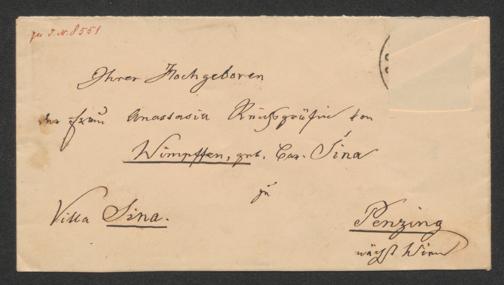 zu I. N. 8551
Ihrer Hochgeboren
der Frau Anastasia Reichsgräfin von
Wimpffen, geb. Bar. Sina
zu
Villa Sina.
Penzing
nächst Wien